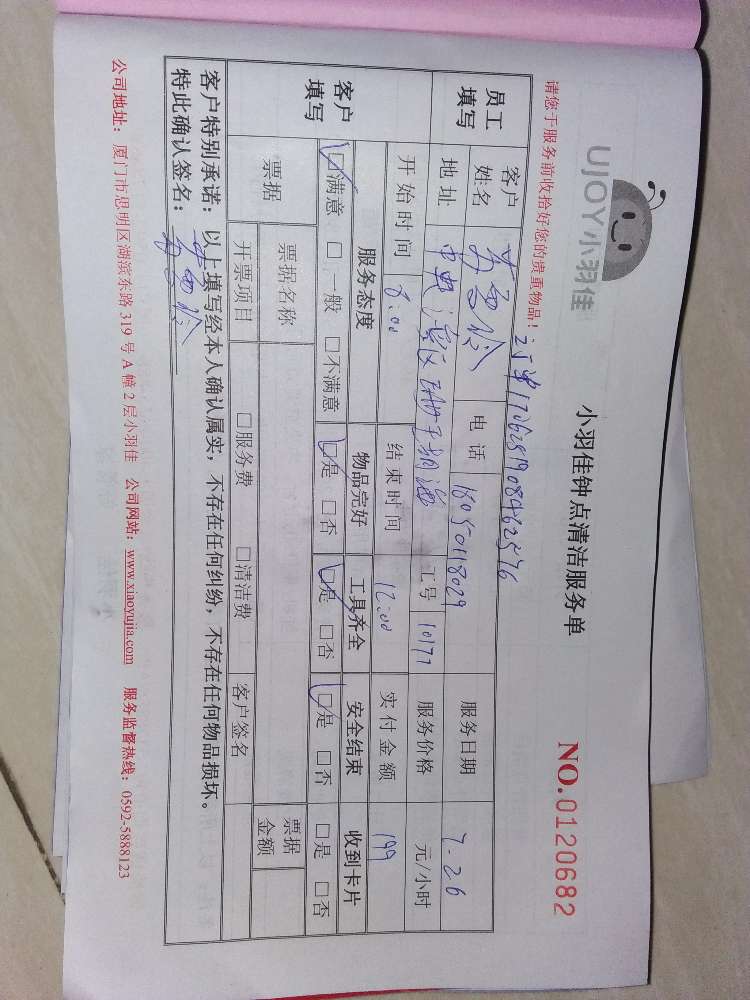 UJOY小羽佳
小羽佳钟点清洁服务单
NO.0120682
请您于服务前收拾好您的贵重物品!
订单17062819084862576
员工填写
客户姓名
电话 18050118029
服务日期 7-26
地址
工号 10177
服务价格 元/小时
开始时间 8:00
结束时间 12:00
实付金额 199
客户填写
服务态度 物品完好 工具齐全 安全结束 收到卡片
☑满意 □一般 □不满意 ☑是 □否 ☑是 □否 ☑是 □否 □是 □否
票据 票据名称 客户签名 票据金额
开票项目 □服务费 □清洁费
客户特别承诺:以上填写经本人确认属实,不存在任何纠纷,不存在任何物品损坏。
特此确认签名:
公司地址:厦门市思明区湖滨东路319号A幢2层小羽佳 公司网站:www.xiaoyujia.com 服务监督热线:0592-5888123